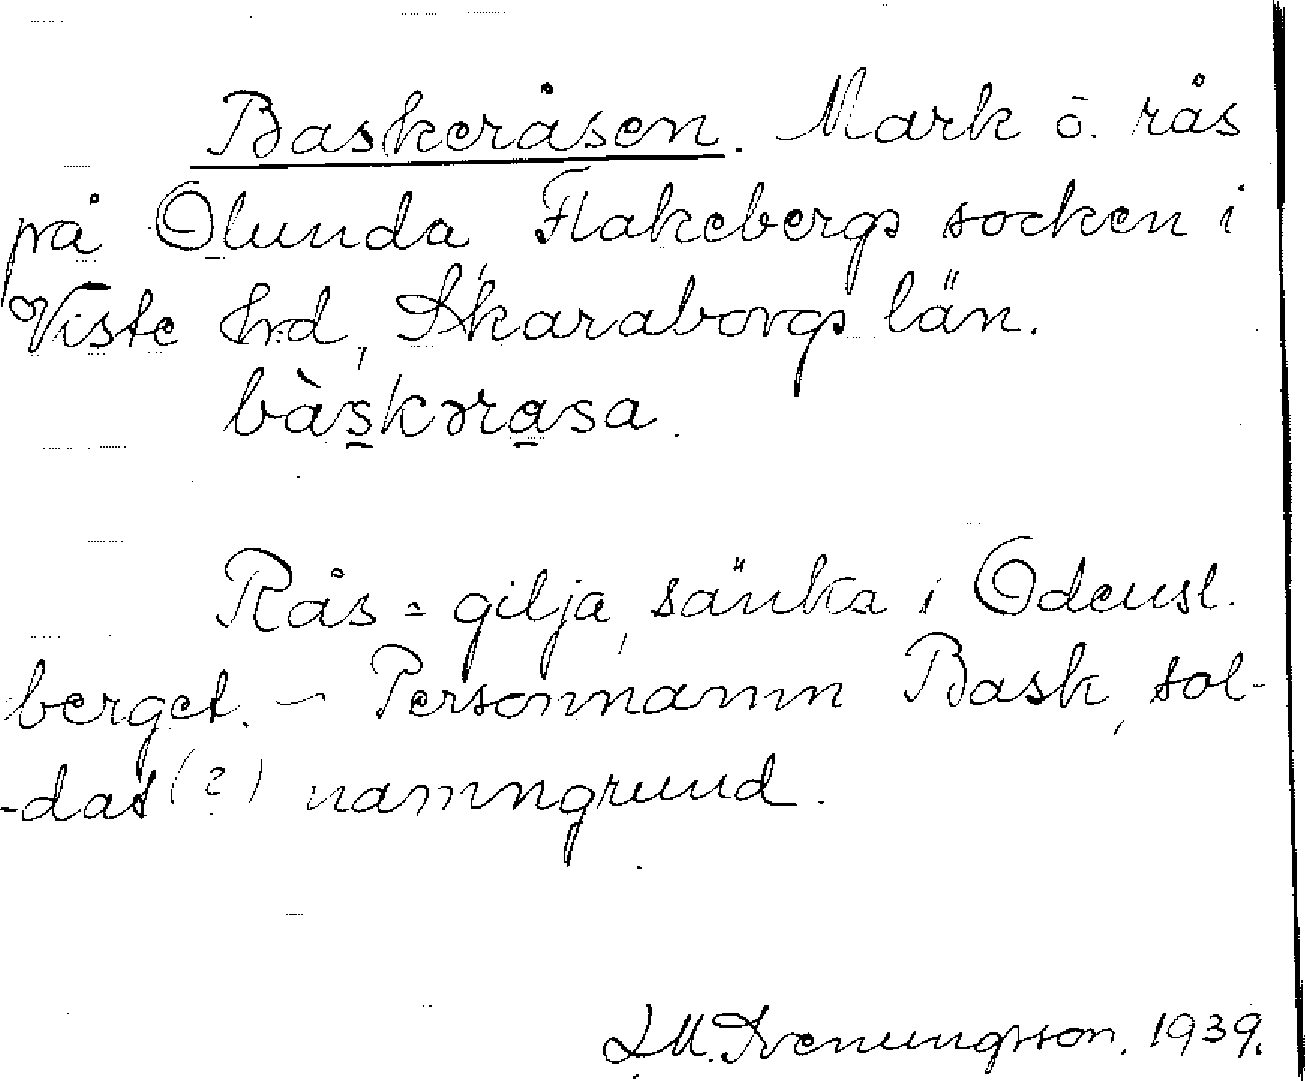 Baskeråsen. Mark o. rås
på Olunda, Flakebergs socken i
Viste hrd, Skaraborgs län.
bàskərasa.
Rås = gilja, sänka i Odensl.
berget. – Personnamn Bask, sol-
-dat (?) namngrund.
L.M. Svenungsson. 1939.